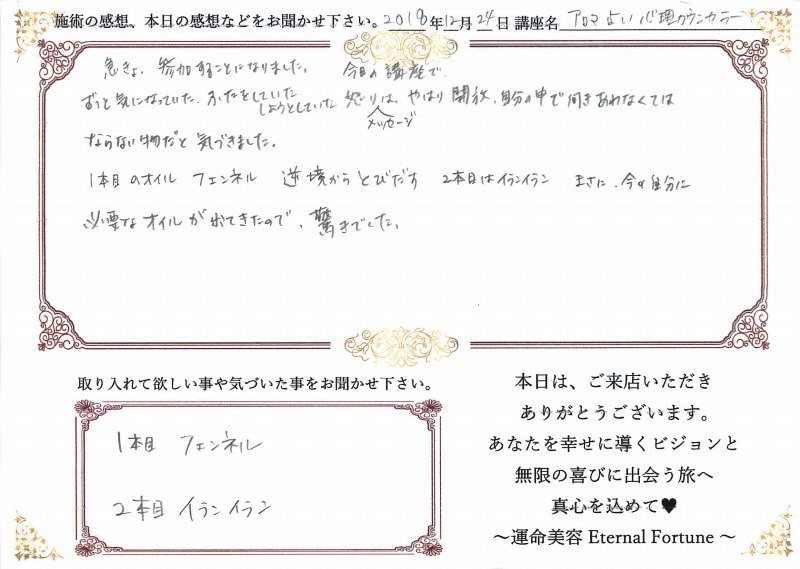 施術の感想、本日の感想などをお聞かせ下さい。2018年12月24日 講座名 アロマ占い心理カウンセラー
急きょ、参加することになりました。 今日の講座で、
ずっと気になっていた、ふたをしていた 怒りは、やはり 開放、自分の中で向きあわなくては
しようとしていた メッセージ
ならない物だと気づきました。
1本目のオイル フェンネル 逆境からとびだす 2本目はイランイラン まさに、今の自分に
必要なオイルが出てきたので、驚きでした。
取り入れて欲しい事や気づいた事をお聞かせ下さい。
1本目 フェンネル
2本目 イランイラン
本日は、ご来店いただき
ありがとうございます。
あなたを幸せに導くビジョンと
無限の喜びに出会う旅へ
真心を込めて♥
～運命美容 Eternal Fortune～